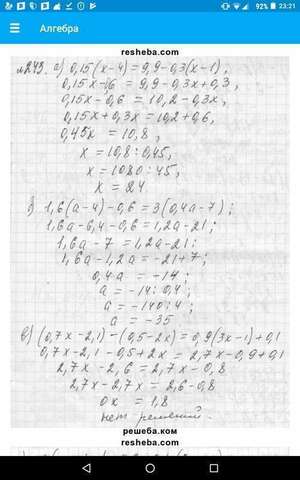 92% 23:21
Алгебра
resheba.com
№243. а) 0,15(x-4)=9,9-0,3(x-1);
0,15x-0,6=9,9-0,3x+0,3,
0,15x-0,6=10,2-0,3x,
0,15x+0,3x=10,2+0,6,
0,45x=10,8,
x=10,8:0,45,
x=1080:45,
x=24
б) 1,6(a-4)-0,6=3(0,4a-7);
1,6a-6,4-0,6=1,2a-21;
1,6a-7=1,2a-21;
1,6a-1,2a=-21+7;
0,4a=-14;
a=-14:0,4;
a=-140:4;
a=-35
в) (0,7x-2,1)-(0,5-2x)=0,9(3x-1)+0,1
0,7x-2,1-0,5+2x=2,7x-0,9+0,1
2,7x-2,6=2,7x-0,8
2,7x-2,7x=2,6-0,8
0x=1,8
нет решений.
решеба.ком
resheba.com